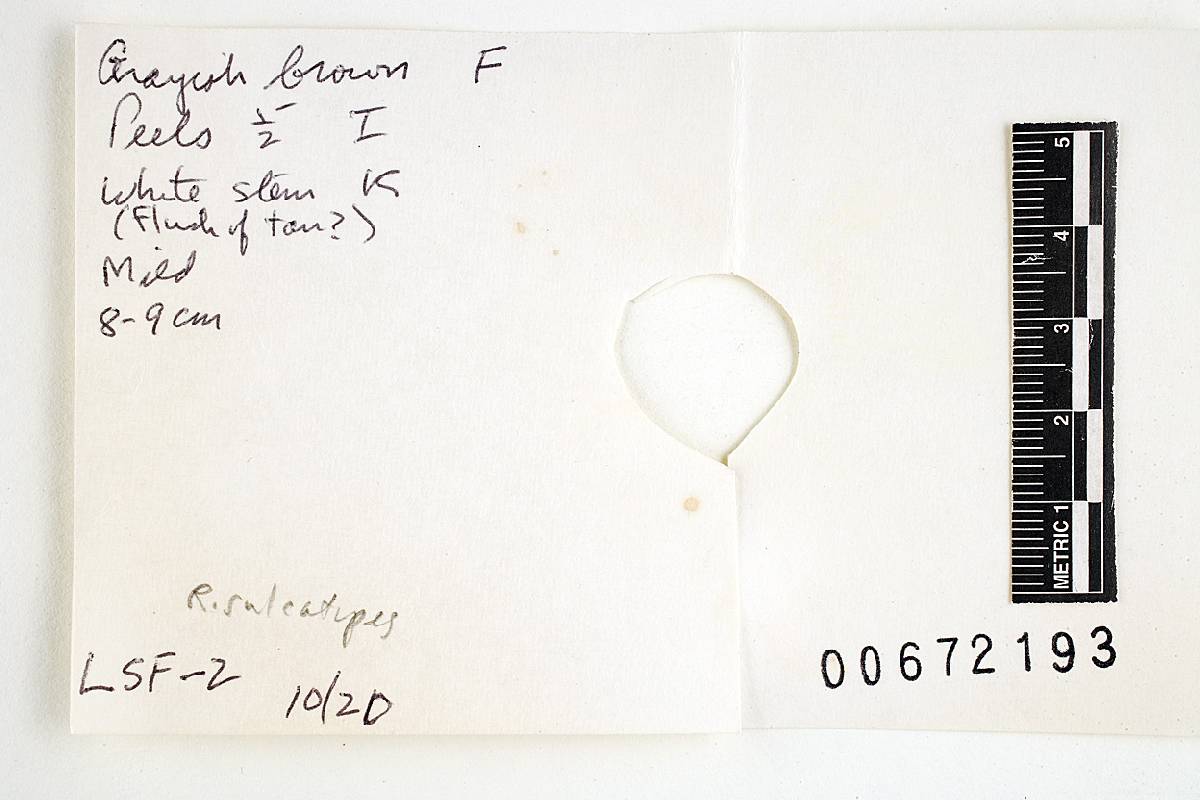 Grayish brown F
Peels 1/2 I
White stem K
(Flush of tan?)
Mild
8-9 cm
R. sulcatipes
LSF-2
10/20
5
4
3
2
METRIC 1
00672193